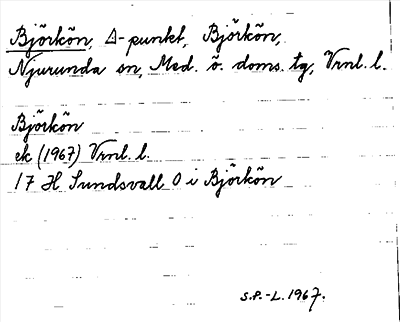 Björkön, Δ-punkt, Björkön,
Njurunda sn, Med. ö. doms. tg, Vrnl. l.
Björkön
ek (1967) Vrnl. l.
17 H Sundsvall O i Björkön
S.P.-L. 1967.